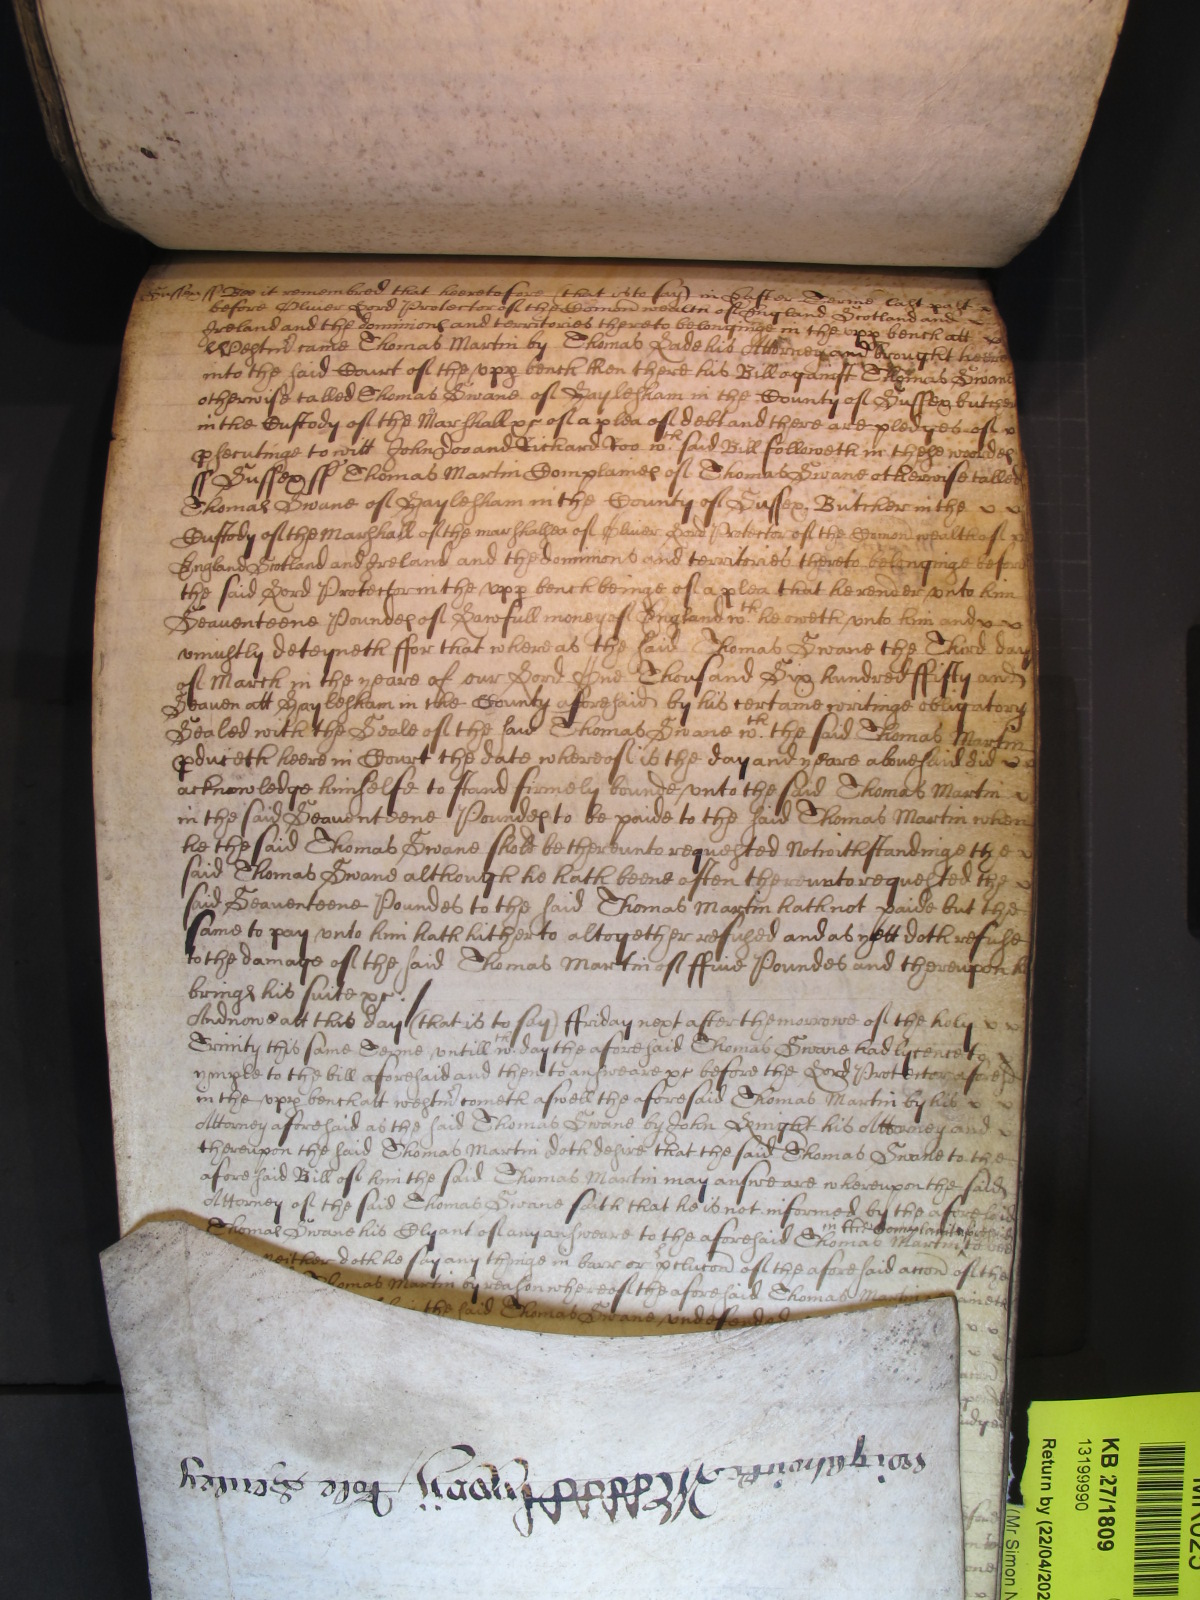 Sussex ss Bee it remembred that heeretofore (that is to say) in Easter Terme last past
before Oliver Lord Protector of the Comon wealth of England Scotland and
Ireland and the dominions and territories thereto belonginge in the upp bench att
Westmr came Thomas Martin by Thomas Eade his Attorney and brought heere
into the said Court of the upp bench then there his Bill against Thomas Swane
otherwise called Thomas Swane of Haylesham in the County of Sussex butcher
in the Custody of the Marshall &c of a plea of debt and there are pledges of
psecutinge to witt John Doo and Richard Roo wch said Bill followeth in these wordes
ss Sussex ss Thomas Martin Complaines of Thomas Swane otherwise called
Thomas Swane of Haylesham in the County of Sussex Butcher in the
Custody of the Marshall of the marshallsea of Oliver Lord Protector of the Comon wealth of
England Scotland and Ireland and the dominions and territories thereto belonginge before
the said Lord Protector in the upp bench beinge of a plea that he render unto him
Seaventeene Poundes of Lawfull money of England wch he oweth unto him and
uniustly deteyneth ffor that whereas the said Thomas Swane the Third day
of March in the yeare of our Lord One Thousand Six hundred ffifty and
Seaven att Haylesham in the County aforesaid by his certaine writinge obligatory
Sealed with the Seale of the said Thomas Swane wch the said Thomas Martin
pduceth heere in Court the date whereof is the day and yeare abovesaid did
acknowledge himselfe to stand firmely bounde unto the said Thomas Martin
in the said Seaventeene Poundes to be paide to the said Thomas Martin when
he the said Thomas Swane shold be thereunto requested Notwithstandinge the
said Thomas Swane although he hath beene often thereunto requested the
said Seaventeene Poundes to the said Thomas Martin hath not paide but the
same to pay unto him hath hitherto altogether refused and as yett doth refuse
to the damage of the said Thomas Martin of ffive Poundes and thereupon he
brings his suite &c
And nowe att this day (that is to say) ffriday next after the morrowe of the holy
Trinity this same Terme untill wch day the aforesaid Thomas Swane had lycence to
ymple to the bill aforesaid and then to answeare &c before the Lord Protector aforesd
in the upp bench att westmr cometh aswell the aforesaid Thomas Martin by his
Attorney aforesaid as the said Thomas Swane by John Knight his Attorney and
thereupon the said Thomas Martin doth desire that the said Thomas Swane to the
aforesaid Bill of him the said Thomas Martin may answeare whereupon the said
Attorney of the said Thomas Swane saith that he is not informed by the aforesaid
in the Complaint aforesaid
Thomas Swane his Clyant of any answeare to the aforesaid Thomas Martin to
neither doth he say any thinge in barr or pclucon of the aforesaid accon of the
Thomas Martin by reason whereof the aforesaid Thomas Martin
the said Thomas Swane undefended
KB 27/1809
13199990
Return by (22/04/202
(Mr Simon N